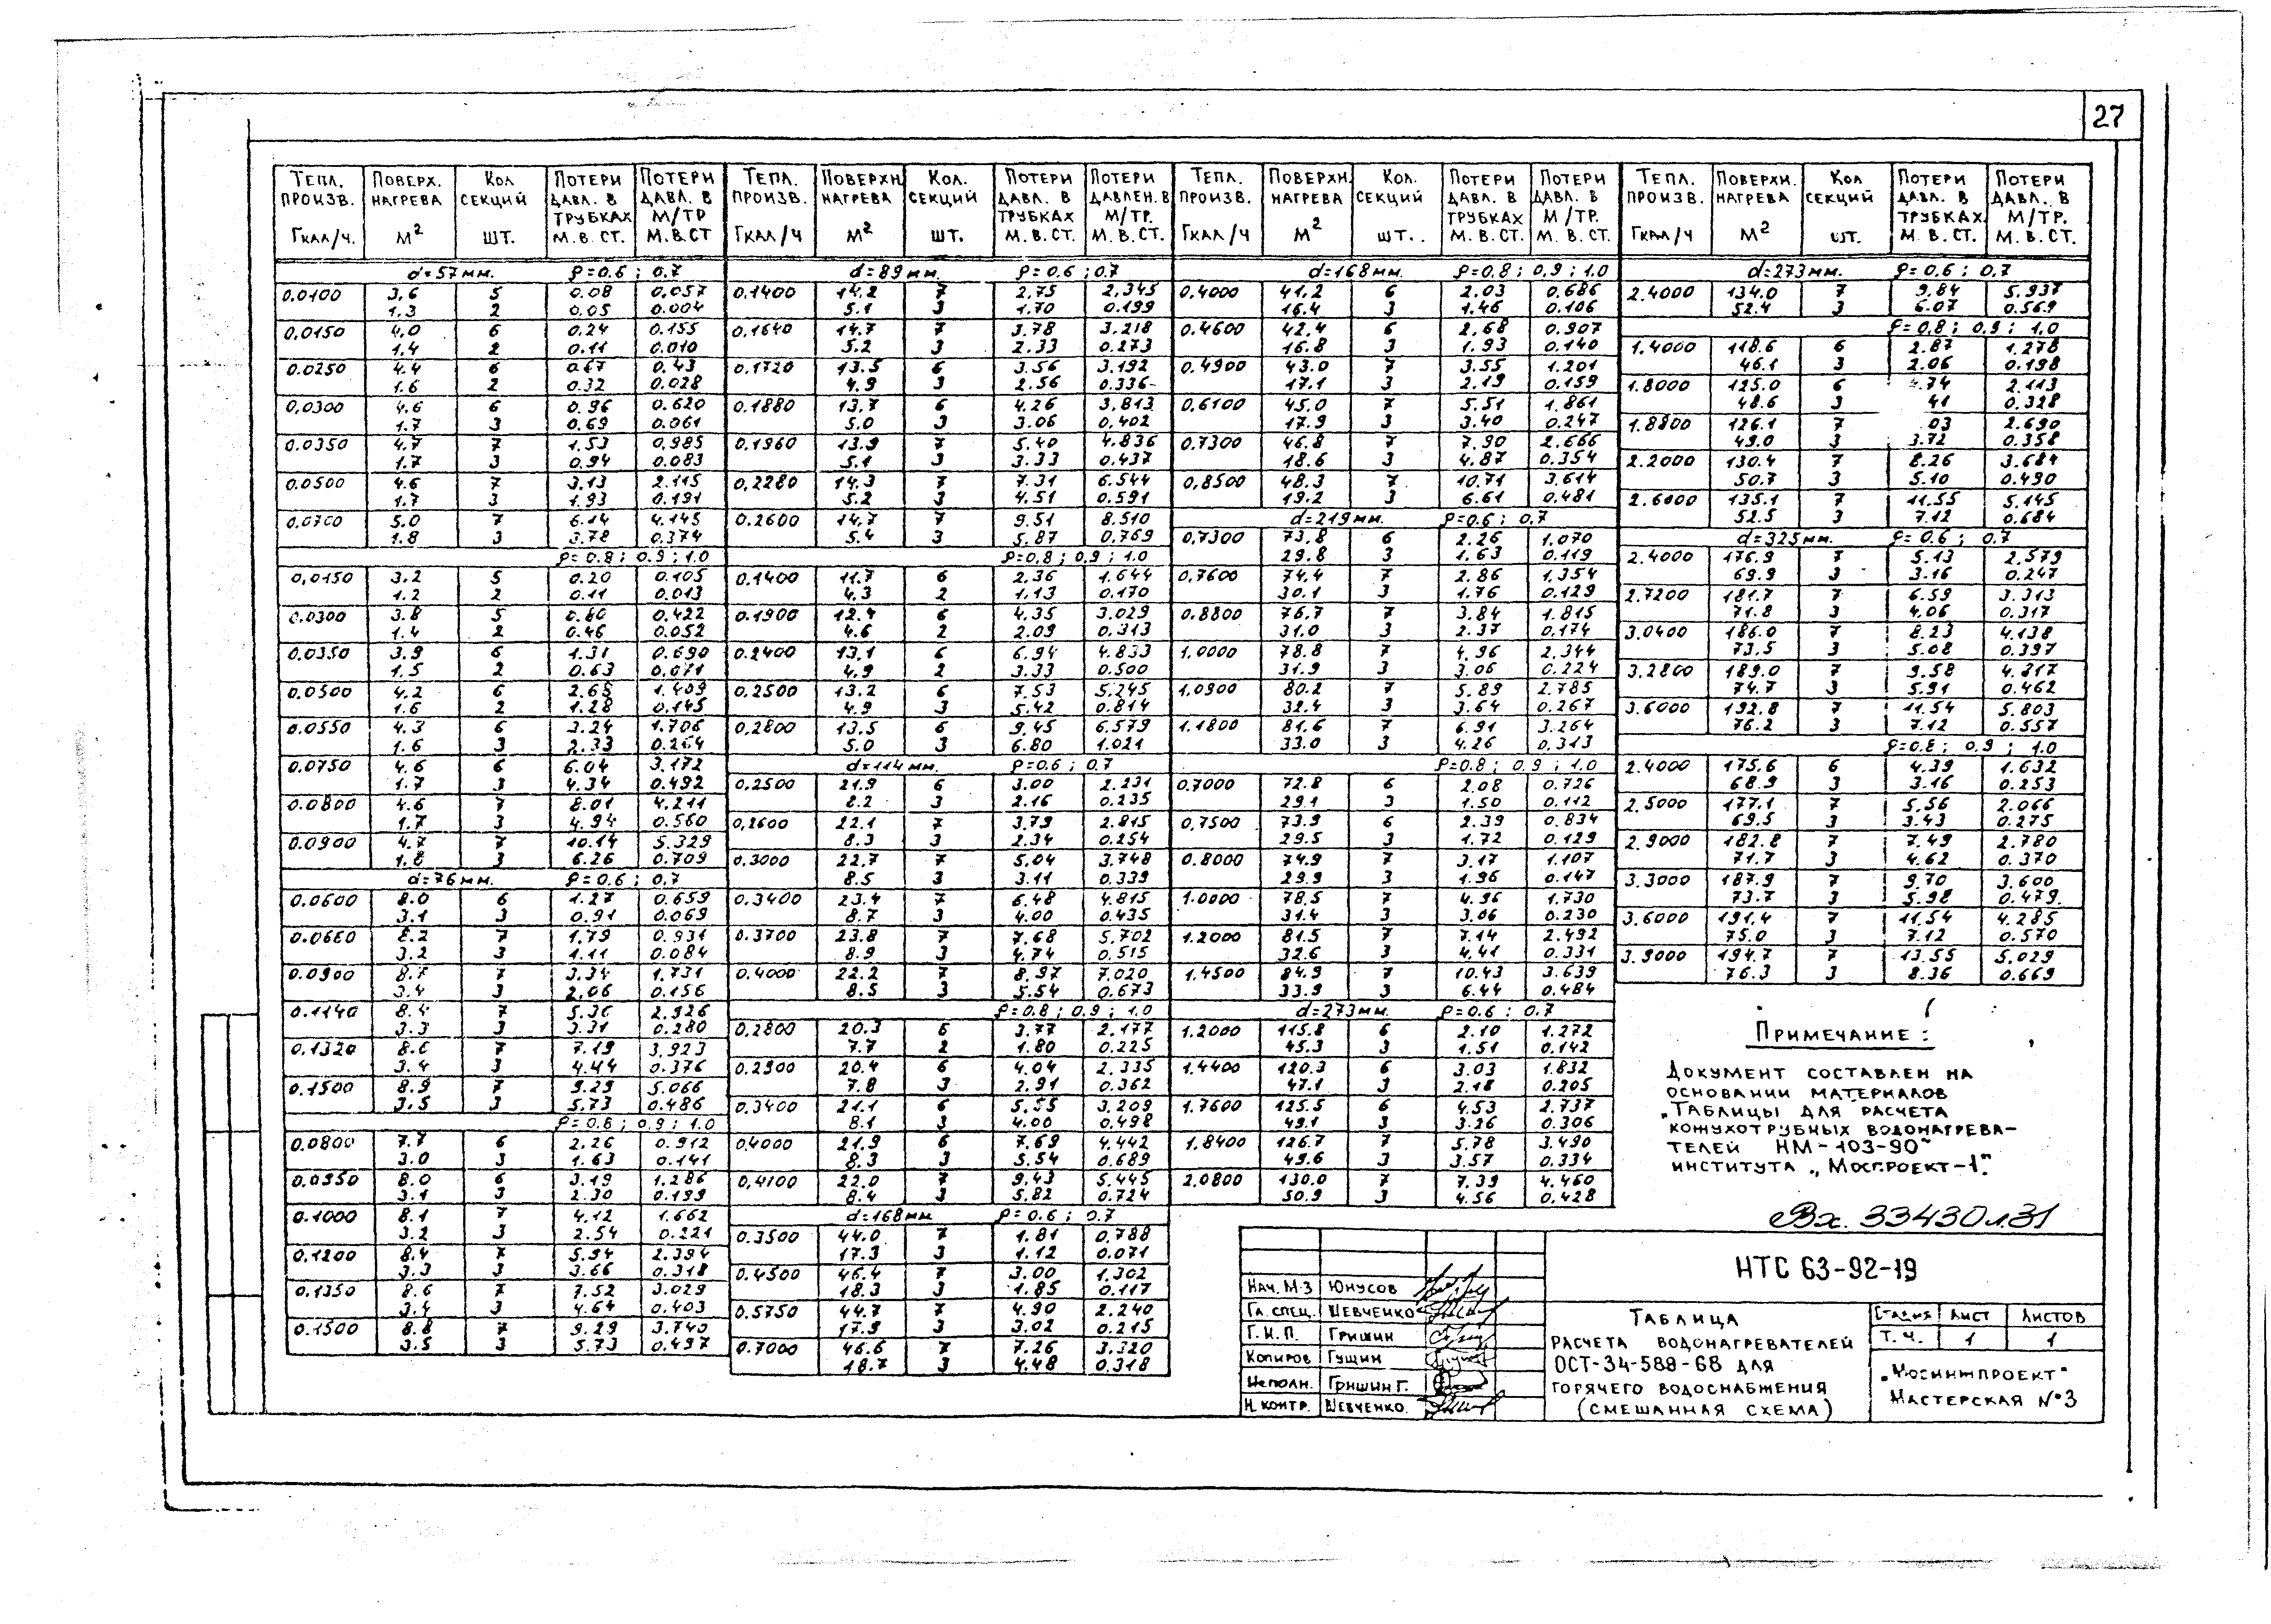 27
ТЕПЛ. ПРОИЗВ. ГКАЛ/Ч. ПОВЕРХ. НАГРЕВА М² КОЛ СЕКЦИЙ ШТ. ПОТЕРИ ДАВЛ. В ТРУБКАХ М.В.СТ. ПОТЕРИ ДАВЛ. В М/ТР М.В.СТ
d=57мм. ρ=0.6; 0.7
0.0100 3.6 5 0.08 0.057
1.3 2 0.05 0.004
0.0150 4.0 6 0.24 0.155
1.4 2 0.11 0.010
0.0250 4.4 6 0.67 0.43
1.6 2 0.32 0.028
0.0300 4.6 6 0.96 0.620
1.7 3 0.69 0.061
0.0350 4.7 7 1.53 0.985
1.7 3 0.94 0.083
0.0500 4.6 7 3.13 2.115
1.7 3 1.93 0.191
0.0700 5.0 7 6.14 4.145
1.8 3 3.78 0.374
ρ=0.8; 0.9; 1.0
0.0150 3.2 5 0.20 0.105
1.2 2 0.11 0.013
0.0300 3.8 5 0.80 0.422
1.4 2 0.46 0.052
0.0350 3.9 6 1.31 0.690
1.5 2 0.63 0.071
0.0500 4.2 6 2.68 1.409
1.6 2 1.28 0.145
0.0550 4.3 6 3.24 1.706
1.6 3 2.33 0.264
0.0750 4.6 6 6.04 3.172
1.7 3 4.34 0.492
0.0800 4.6 7 8.01 4.211
1.7 3 4.94 0.560
0.0900 4.7 7 10.14 5.329
1.8 3 6.26 0.709
d=76мм. ρ=0.6; 0.7
0.0600 8.0 6 1.27 0.659
3.1 3 0.91 0.069
0.0660 8.2 7 1.79 0.931
3.2 3 1.11 0.084
0.0900 8.7 7 3.34 1.731
3.4 3 2.06 0.156
0.1140 8.4 7 5.36 2.926
3.3 3 3.31 0.280
0.1320 8.6 7 7.19 3.923
3.4 3 4.44 0.376
0.1500 8.9 7 9.29 5.066
3.5 3 5.73 0.486
ρ=0.8; 0.9; 1.0
0.0800 7.7 6 2.26 0.912
3.0 3 1.63 0.141
0.0950 8.0 6 3.19 1.286
3.1 3 2.30 0.199
0.1000 8.1 7 4.12 1.662
3.2 3 2.54 0.221
0.1200 8.4 7 5.94 2.394
3.3 3 3.66 0.318
0.1350 8.6 7 7.52 3.029
3.4 3 4.64 0.403
0.1500 8.8 7 9.29 3.740
3.5 3 5.73 0.497
ТЕПЛ. ПРОИЗВ. ГКАЛ/Ч ПОВЕРХН. НАГРЕВА М² КОЛ. СЕКЦИЙ ШТ. ПОТЕРИ ДАВЛ. В ТРУБКАХ М.В.СТ. ПОТЕРИ ДАВЛЕН. В М/ТР. М.В.СТ.
d=89мм. ρ=0.6; 0.7
0.1400 14.2 7 2.75 2.345
5.1 3 1.70 0.199
0.1640 14.7 7 3.78 3.218
5.2 3 2.33 0.273
0.1720 13.5 6 3.56 3.192
4.9 3 2.56 0.336
0.1880 13.7 6 4.26 3.813
5.0 3 3.06 0.402
0.1960 13.9 7 5.40 4.836
5.1 3 3.33 0.437
0.2280 14.3 7 7.31 6.544
5.2 3 4.51 0.591
0.2600 14.7 7 9.51 8.510
5.4 3 5.87 0.769
ρ=0.8; 0.9; 1.0
0.1400 11.7 6 2.36 1.644
4.3 2 1.13 0.170
0.1900 12.4 6 4.35 3.029
4.6 2 2.09 0.313
0.2400 13.1 6 6.94 4.833
4.9 2 3.33 0.500
0.2500 13.2 6 7.53 5.245
4.9 3 5.42 0.814
0.2800 13.5 6 9.45 6.579
5.0 3 6.80 1.021
d=114мм. ρ=0.6; 0.7
0.2500 21.9 6 3.00 2.231
8.2 3 2.16 0.235
0.2600 22.1 7 3.79 2.815
8.3 3 2.34 0.254
0.3000 22.7 7 5.04 3.748
8.5 3 3.11 0.339
0.3400 23.4 7 6.48 4.815
8.7 3 4.00 0.435
0.3700 23.8 7 7.68 5.702
8.9 3 4.74 0.515
0.4000 22.2 7 8.97 7.020
8.5 3 5.54 0.673
ρ=0.8; 0.9; 1.0
0.2800 20.3 6 3.77 2.177
7.7 2 1.80 0.225
0.2900 20.4 6 4.04 2.335
7.8 3 2.91 0.362
0.3400 21.1 6 5.55 3.209
8.1 3 4.00 0.498
0.4000 21.9 6 7.69 4.442
8.3 3 5.54 0.689
0.4100 22.0 7 9.43 5.445
8.4 3 5.82 0.724
d=168мм ρ=0.6; 0.7
0.3500 44.0 7 1.81 0.788
17.3 3 1.12 0.071
0.4500 46.4 7 3.00 1.302
18.3 3 1.85 0.117
0.5750 44.7 7 4.90 2.240
17.9 3 3.02 0.215
0.7000 46.6 7 7.26 3.320
18.7 3 4.48 0.318
ТЕПЛ. ПРОИЗВ. ГКАЛ/Ч ПОВЕРХН. НАГРЕВА М² КОЛ. СЕКЦИЙ ШТ.. ПОТЕРИ ДАВЛ. В ТРУБКАХ М.В.СТ. ПОТЕРИ ДАВЛ. В М/ТР. М.В.СТ.
d=168мм. ρ=0.8; 0.9; 1.0
0.4000 41.2 6 2.03 0.686
16.4 3 1.46 0.106
0.4600 42.4 6 2.68 0.907
16.8 3 1.93 0.140
0.4900 43.0 7 3.55 1.201
17.1 3 2.19 0.159
0.6100 45.0 7 5.51 1.861
17.9 3 3.40 0.247
0.7300 46.8 7 7.90 2.666
18.6 3 4.87 0.354
0.8500 48.3 7 10.71 3.614
19.2 3 6.61 0.481
d=219мм. ρ=0.6; 0.7
0.7300 73.8 6 2.26 1.070
29.8 3 1.63 0.119
0.7600 74.4 7 2.86 1.354
30.1 3 1.76 0.129
0.8800 76.7 7 3.84 1.815
31.0 3 2.37 0.174
1.0000 78.8 7 4.96 2.344
31.9 3 3.06 0.224
1.0900 80.2 7 5.89 2.785
32.4 3 3.64 0.267
1.1800 81.6 7 6.91 3.264
33.0 3 4.26 0.313
ρ=0.8; 0.9; 1.0
0.7000 72.8 6 2.08 0.726
29.1 3 1.50 0.112
0.7500 73.9 6 2.39 0.834
29.5 3 1.72 0.129
0.8000 74.9 7 3.17 1.107
29.9 3 1.96 0.147
1.0000 78.5 7 4.96 1.730
31.4 3 3.06 0.230
1.2000 81.5 7 7.14 2.492
32.6 3 4.41 0.331
1.4500 84.9 7 10.43 3.639
33.9 3 6.44 0.484
d=273мм. ρ=0.6; 0.7
1.2000 115.8 6 2.10 1.272
45.3 3 1.51 0.142
1.4400 120.3 6 3.03 1.832
47.1 3 2.18 0.205
1.7600 125.5 6 4.53 2.737
49.1 3 3.26 0.306
1.8400 126.7 7 5.78 3.490
49.6 3 3.57 0.334
2.0800 130.0 7 7.39 4.460
50.9 3 4.56 0.428
ТЕПЛ. ПРОИЗВ. ГКАЛ/Ч ПОВЕРХН. НАГРЕВА М² КОЛ СЕКЦИЙ ШТ. ПОТЕРИ ДАВЛ. В ТРУБКАХ М.В.СТ. ПОТЕРИ ДАВЛ. В М/ТР. М.В.СТ.
d=273мм. ρ=0.6; 0.7
2.4000 134.0 7 9.84 5.937
52.4 3 6.07 0.569
ρ=0.8; 0.9; 1.0
1.4000 118.6 6 2.87 1.278
46.1 3 2.06 0.198
1.8000 125.0 6 4.74 2.113
48.6 3 41 0.328
1.8800 126.1 7 03 2.690
49.0 3 3.72 0.358
2.2000 130.4 7 8.26 3.684
50.7 3 5.10 0.490
2.6000 135.1 7 11.55 5.145
52.5 3 7.12 0.684
d=325мм. ρ=0.6; 0.7
2.4000 176.9 7 5.13 2.579
69.9 3 3.16 0.247
2.7200 181.7 7 6.59 3.313
71.8 3 4.06 0.317
3.0400 186.0 7 8.23 4.138
73.5 3 5.08 0.397
3.2800 189.0 7 9.58 4.817
74.7 3 5.91 0.462
3.6000 192.8 7 11.54 5.803
76.2 3 7.12 0.557
ρ=0.8; 0.9; 1.0
2.4000 175.6 6 4.39 1.632
68.9 3 3.16 0.253
2.5000 177.1 7 5.56 2.066
69.5 3 3.43 0.275
2.9000 182.8 7 7.49 2.780
71.7 3 4.62 0.370
3.3000 187.9 7 9.70 3.600
73.7 3 5.98 0.479
3.6000 191.4 7 11.54 4.285
75.0 3 7.12 0.570
3.9000 194.7 7 13.55 5.029
76.3 3 8.36 0.669
ПРИМЕЧАНИЕ:
ДОКУМЕНТ СОСТАВЛЕН НА
ОСНОВАНИИ МАТЕРИАЛОВ
„ТАБЛИЦЫ ДЛЯ РАСЧЕТА
КОЖУХОТРУБНЫХ ВОДОНАГРЕВА-
ТЕЛЕЙ НМ-103-90"
ИНСТИТУТА „МОСПРОЕКТ-1".
Вх. 33430л31
НТС 63-92-19
НАЧ. М-3 ЮНУСОВ
ГЛ. СПЕЦ. ШЕВЧЕНКО
Г.И.П. ГРИШИН
КОПИРОВ ГУЩИН
ИСПОЛН. ГРИШИН Г.
Н. КОНТР. ШЕВЧЕНКО.
ТАБЛИЦА
РАСЧЕТА ВОДОНАГРЕВАТЕЛЕЙ
ОСТ-34-588-68 ДЛЯ
ГОРЯЧЕГО ВОДОСНАБЖЕНИЯ
(СМЕШАННАЯ СХЕМА)
СТАДИЯ ЛИСТ ЛИСТОВ
Т.Ч. 1 1
„МОСИНЖПРОЕКТ"
МАСТЕРСКАЯ №3